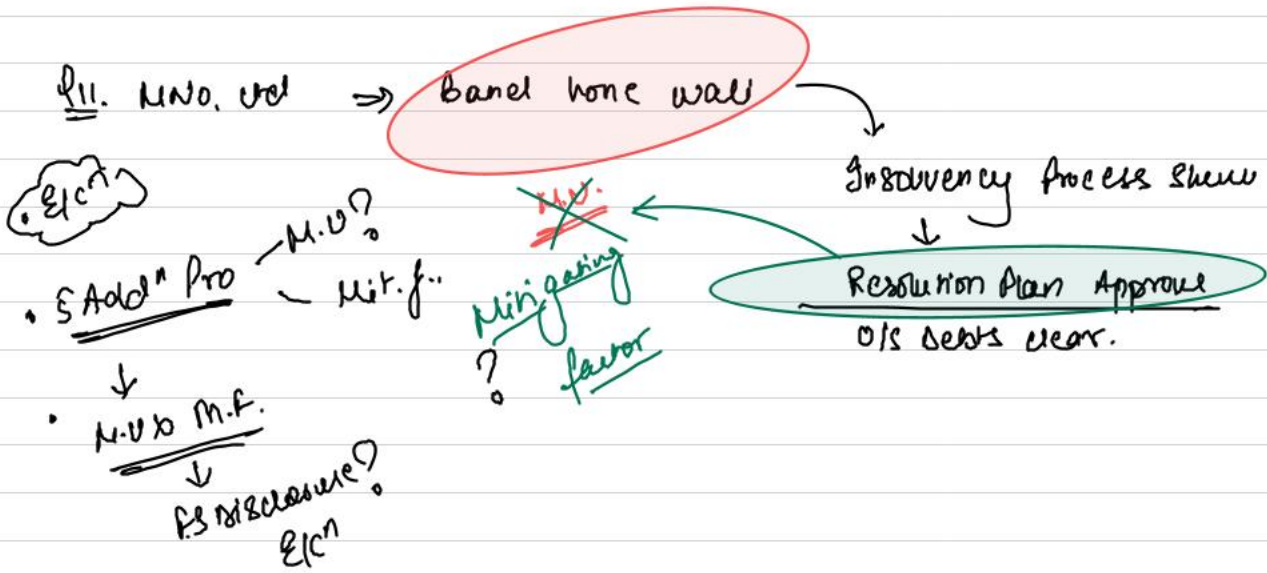 Q11. MNO. Ltd ⇒ Band hone wali
Insolvency Process Shuru
↓
Resolution Plan Approve
O/S Debts clear.
M.U.
Mitigating
factor
?
• E/Cⁿ
• 5 Addⁿ Pro
M.U?
Mit.f..
↓
• M.U & M.F.
↓
F.S Disclosure?
E/Cⁿ